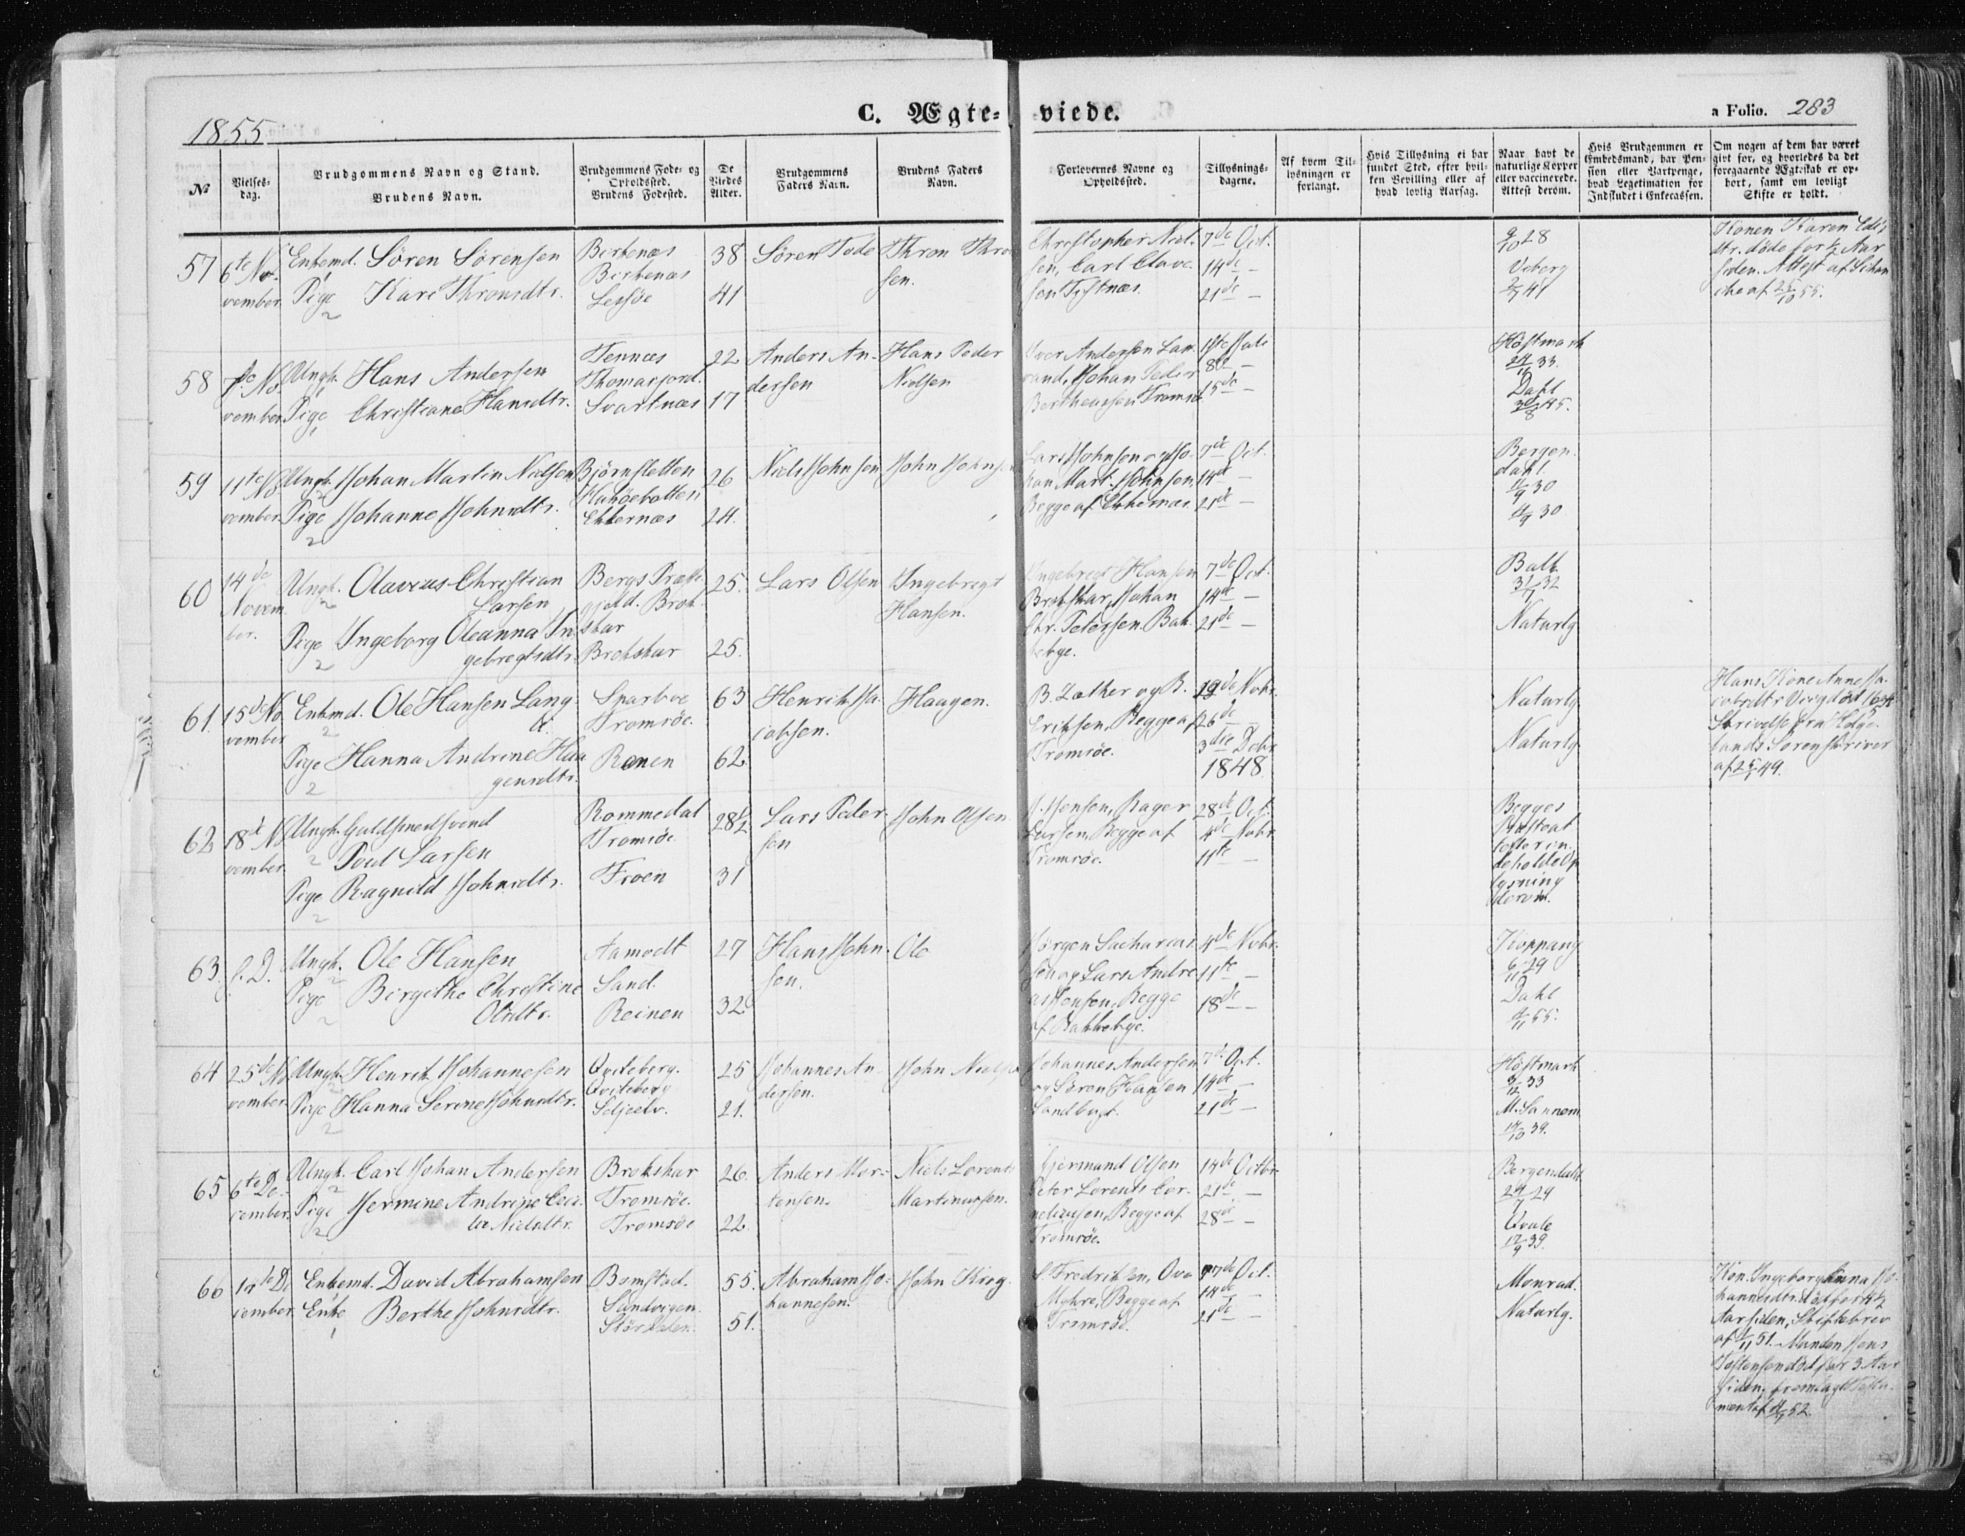 1855
C. Ægte-viede.
a Folio. 283
№
Vielses-
dag.
Brudgommens Navn og Stand.
Brudens Navn.
Brudgommens Føde- og
Opholdssted.
Brudens Fødested.
De
Viedes
Alder.
Brudgommens
Faders Navn.
Brudens Faders
Navn.
Forlovernes Navne og
Opholdssted.
Tillysnings-
dagene.
Af hvem Til-
lysningen er
forlangt.
Hvis Tillysning ei har
fundet Sted, efter hvil-
ken Bevilling eller af
hvad lovlig Aarsag.
Naar havt de
naturlige Kopper
eller vaccinerede.
Attest derom.
Hvis Brudgommen er
Embedsmand, har Pen-
sion eller Vartpenge,
hvad Legetimation for
Indskudet i Enkecassen.
Om nogen af dem har været
givt før, og hvorledes da det
foregaaende Ægteskab er op-
hørt, samt om lovligt
Skifte er holdt.
57
6te No-
vember
Enkemd. Sören Sörensen
Pige Kari Thronsdtr.
2
Berbenæs
Berbenæs
Lessöe
38
41
Sören Tode
Thron Thron
sen.
Christopher Niel-
sen, Carl Clave-
sen Tystnæs.
7de Oct.
14de —
21de —
9/10 28
Veberg
2/7 41
Konen Karen Edis
dtr. döde for 1/2 Aar
siden. Attest af
af 25/10 55.
58
No-
vember
Ungk. Hans Andersen
Pige Christiane Hansdtr.
Tennes
Thomasjord.
Svartnæs
22
17
Anders An-
dersen
Hans Peder
Nielsen
Iver Andersen Lav
rand, Johan Peder
Bertheussen Tromsö
1ste Juli
8de —
15de —
Høstmark
33.
Dahl
45.
59
11te No
vember
Ungk. Johan Martin Nielsen
2
Pige Johanne Johnsdtr.
2
Björnsletten
Hansöebotten
Ekkernæs
26
24.
Niels Johnsen
John Johnsen
Lars Johnsen og Jo-
han Mart. Johnsen
Begge af
7de Oct.
14de —
21de —
Bergen
dahl.
11/9 30
11/9 30
60
14de
Novem
ber.
Ungk. Olavius Christian
2
Larsen
Pige Ingeborg Oleanna In
2
gebregtsdtr.
Bergs Præste
gjeld. Brok-
skar
Brokskar
25.
25.
Lars Olsen
Ingebregt
Hansen.
Ingebregt Hansen
Brokskar, Johan
Chr. Petersen Bak
kebye.
7de Oct.
14de —
21de —
Balk
31/7 32
Naturlg
61.
15de No
vember
Enkemd. Ole Hansen Lang
2
Pige Hanna Andrine Haa
2
gensdtr.
Sparboe
Tromsöe.
Ranen
63
62
Henrik Ja-
cobsen.
Haagen.
B. Læther og B.
Eriksen, Begge af
Tromsöe.
19de Nobr.
26de —
3die Debr
1848.
Naturlg
Naturlg.
Hans Kone Anne Ja-
cobsdtr
Skrivelse fra Helge-
lands Sorenskriver
af 49.
62
18de No
vember.
Ungk. Guldsmedsvend
2
Poul Larsen
Pige Ragnild Johnsdtr.
2
Rommedal
Tromsöe.
Froen
28 1/2
31
Lars Peder-
sen
John Olsen
J. Jensen, Bager
Larsen, Begge af
Tromsöe.
28de Oct.
4de Nobr.
11te —
Begges
63.
s. D.
Ungk. Ole Hansen
2
Pige Birgithe Christine
2
Olsdtr.
Aamodt
Sand.
Reinen
27
32
Hans John-
sen.
Ole
Jörgen Sacharias
sen og Lars Andre
as Jensen, Begge
af Bakkebye.
4de Nobr.
11te —
18de —
Koppang
6/11 29
Dahl
4/11 55.
64
25de No
vember.
Ungk. Henrik Johannesen
2
Pige Hanna Serine Johnsdtr.
2
Qviteberg.
Qviteberg
Seljeelv.
25
21.
Johannes An-
dersen.
John Niels
Johannes Andersen
og Sören Hansen
Sandbugt.
7de Oct.
14de —
21de —
Høstmark
9/12 33
M. Sannem
14/10 39.
65
6te De-
cember.
Ungk. Carl Johan Andersen
2
Pige Hermine Andrine Ceci-
2
lia Nielsdtr.
Brokskar
Tromsöe.
Tromsöe
26.
22.
Anders Mor-
tensen.
Niels Lorents
Martinussen.
Gjermund Olsen
Peter Lorents Cor-
neliusen, Begge af
Tromsöe.
14de Octbr.
21de —
28de —
Bergendahl
24/7 29
Qvale
12/9 39.
66
De
cember.
Enkemd. David Abrahamsen
Enke Berthe Johnsdtr.
Bomstad.
Sandvigen.
Stördalen.
55.
51.
Abraham Jo-
hannesen.
John Krog.
Fredriksen, Ove
Myhre, Begge af
Tromsöe.
7de Oct.
14de —
21de —
Monrad.
Naturlg.
Kon. Ingeborg Anna Jo-
hannesdtr. död for 4 1/2
Aar siden, Skiftebrev
af 51. Manden Jens
Tostensen död for 3 Aar
siden, fremlagt Testa-
ment af 52.